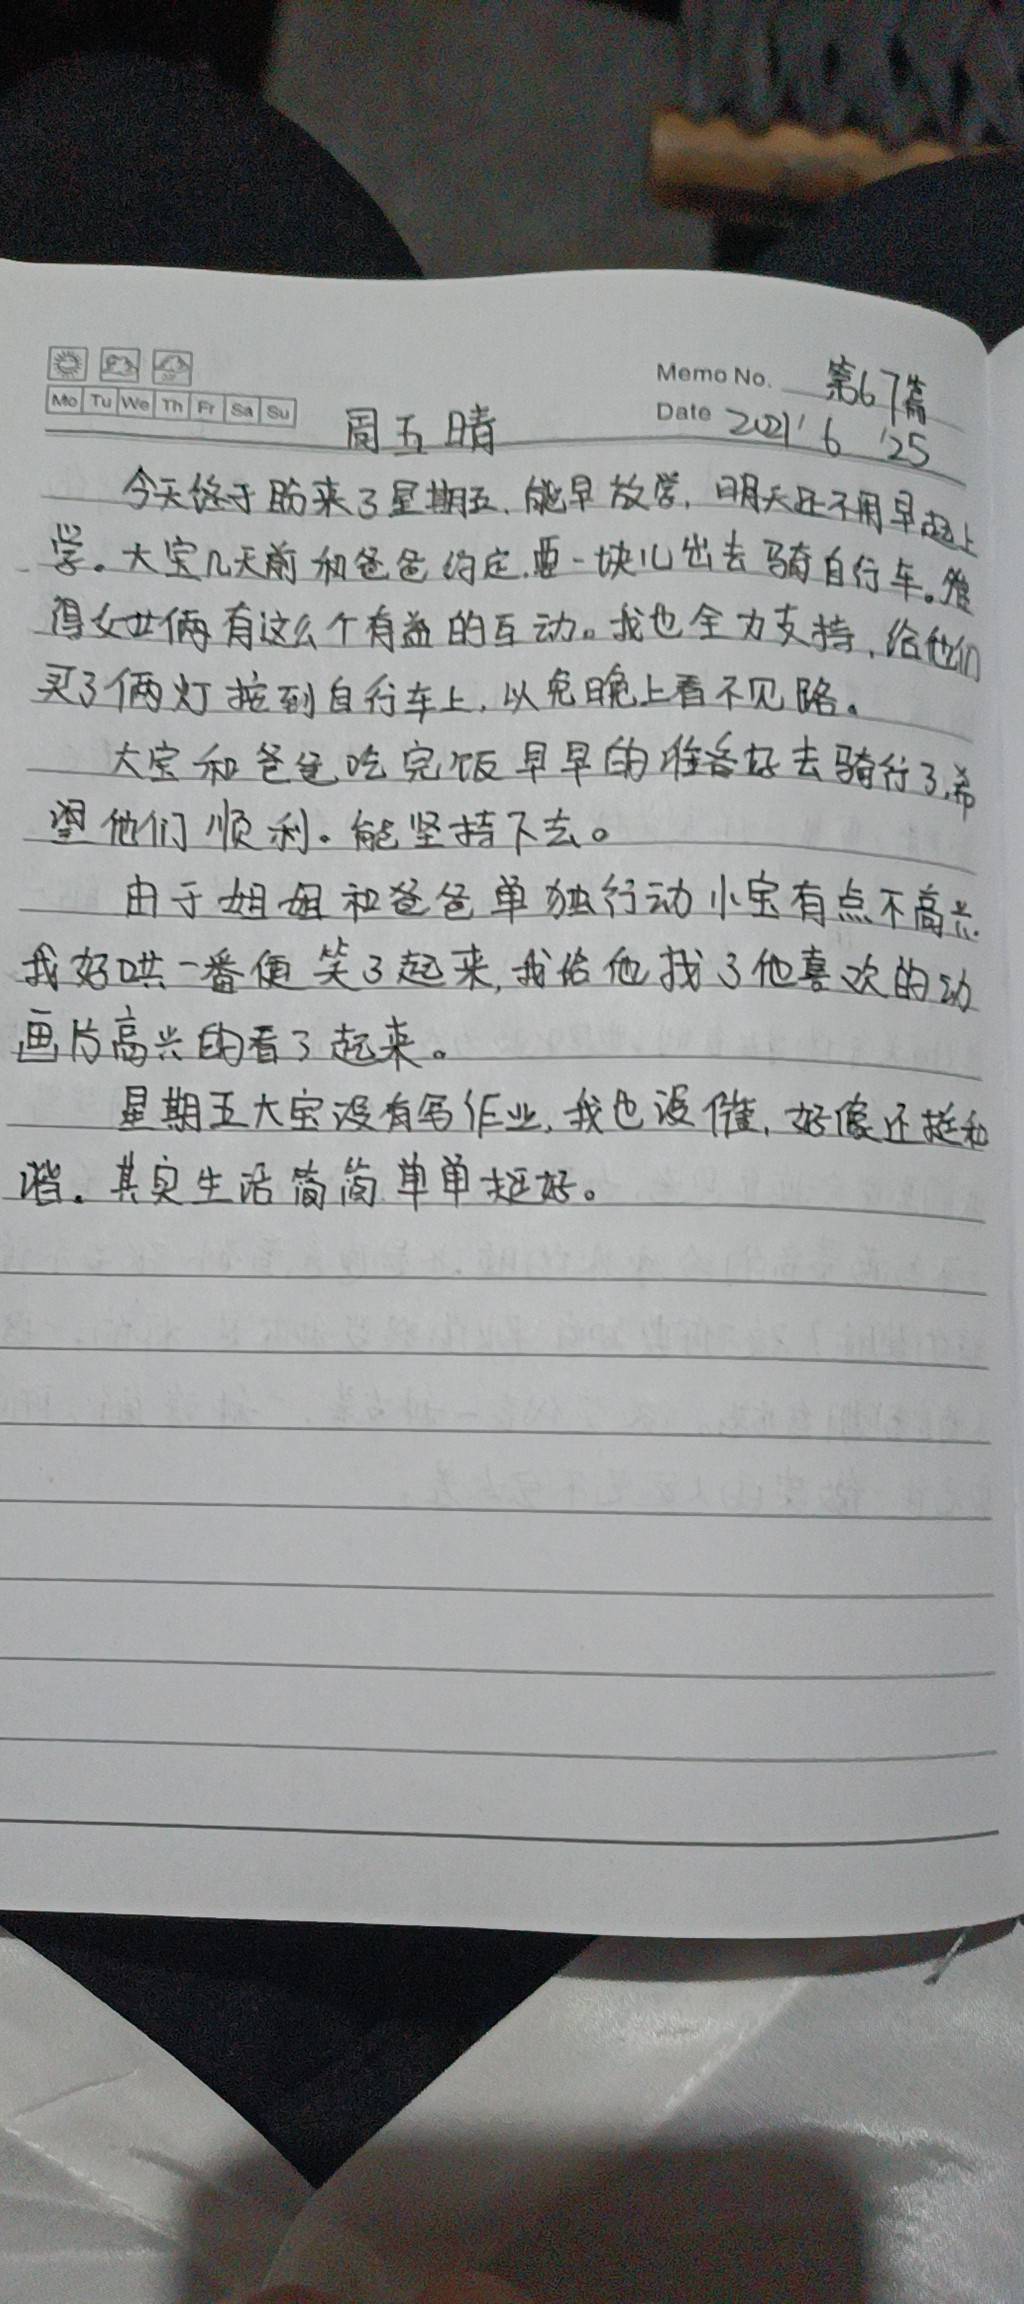 Memo No. 第67篇
Mo Tu We Th Fr Sa Su
Date 2021' 6 '25
周五 晴
今天终于盼来了星期五,能早放学,明天还不用早起上
学。大宝几天前和爸爸约定,要一块儿出去骑自行车。难
得女女俩有这么个有益的互动。我也全力支持,给他们
买了俩灯按到自行车上,以免晚上看不见路。
大宝和爸爸吃完饭早早的准备好去骑行了,希
望他们顺利。能坚持下去。
由于姐姐和爸爸单独行动小宝有点不高兴
我好哄一番便笑了起来,我给他找了他喜欢的动
画片高兴的看了起来。
星期五大宝没有写作业,我也没催,好像还挺和
谐。其实生活简简单单挺好。